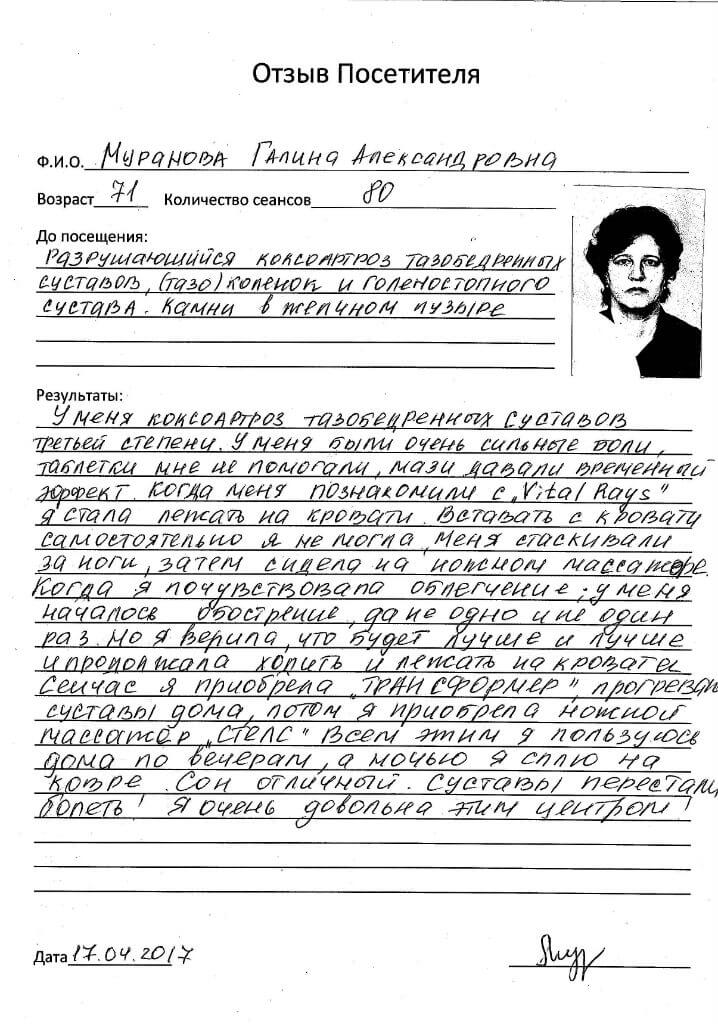 Отзыв Посетителя
Ф.И.О. Муранова Галина Александровна
Возраст 71 Количество сеансов 80
До посещения:
Разрушающийся коксоартроз тазобедренных
суставов, (тазо) коленок и голеностопного
сустава. Камни в желчном пузыре
Результаты:
У меня коксоартроз тазобедренных суставов
третьей степени. У меня были очень сильные боли,
таблетки мне не помогали, мази давали временный
эффект. Когда меня познакомили с „Vital Rays"
я стала лежать на кровати. Вставать с кровати
самостоятельно я не могла, меня стаскивали
за ноги, затем сидела на ножном массажоре.
Когда я почувствовала облегчение; у меня
началось обострение, да не одно и не один
раз. Но я верила, что будет лучше и лучше
и продолжала ходить и лежать на кровате.
Сейчас я приобрела „ТРАНСФОРМЕР", прогреваю
суставы дома, потом я приобрела ножной
массажор „СТЕЛС" Всем этим я пользуюсь
дома по вечерам, а ночью я сплю на
ковре. Сон отличный. Суставы перестали
болеть! Я очень довольна этим центром!
Дата 17.04.2017